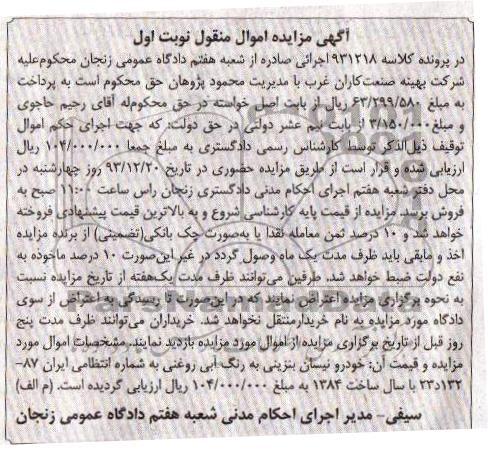 آگهی مزایده اموال منقول نوبت اول
در پرونده کلاسه ۹۳۱۲۱۸ اجرائی صادره از شعبه هفتم دادگاه عمومی زنجان محکوم‌علیه
شرکت بهینه صنعت‌کاران غرب با مدیریت محمود پژوهان حق محکوم است به پرداخت
به مبلغ ۶۳/۲۹۹/۵۸۰ ریال از بابت اصل خواسته در حق محکوم‌له آقای رحیم حاجوی
و مبلغ ۳/۱۵۰/۰۰۰ از بابت نیم عشر دولتی در حق دولت: که جهت اجرای حکم اموال
توقیف ذیل‌الذکر توسط کارشناس رسمی دادگستری به مبلغ جمعا ۱۰۴/۰۰۰/۰۰۰ ریال
ارزیابی شده و قرار است از طریق مزایده حضوری در تاریخ ۹۳/۱۲/۲۰ روز چهارشنبه در
محل دفتر شعبه هفتم اجرای احکام مدنی دادگستری زنجان راس ساعت ۱۱:۰۰ صبح به
فروش برسد. مزایده از قیمت پایه کارشناسی شروع و به بالاترین قیمت پیشنهادی فروخته
خواهد شد و ۱۰ درصد ثمن معامله نقدا یا به‌صورت چک بانکی(تضمینی) از برنده مزایده
اخذ و مابقی باید ظرف مدت یک ماه وصول گردد در غیر این‌صورت ۱۰ درصد ماخوذه به
نفع دولت ضبط خواهد شد. طرفین می‌توانند ظرف مدت یک‌هفته از تاریخ مزایده نسبت
به نحوه برگزاری مزایده اعتراض نمایند که در این‌صورت تا رسیدگی به اعتراض از سوی
دادگاه مورد مزایده به نام خریدارمنتقل نخواهد شد. خریداران می‌توانند ظرف مدت پنج
روز قبل از تاریخ برگزاری مزایده از اموال مورد مزایده بازدید نمایند. مشخصات اموال مورد
مزایده و قیمت آن: خودرو نیسان بنزینی به رنگ آبی روغنی به شماره انتظامی ایران ۸۷-
۱۳۲د۲۳ با سال ساخت ۱۳۸۴ به مبلغ ۱۰۴/۰۰۰/۰۰۰ ریال ارزیابی گردیده است. (م الف)
سیفی- مدیر اجرای احکام مدنی شعبه هفتم دادگاه عمومی زنجان